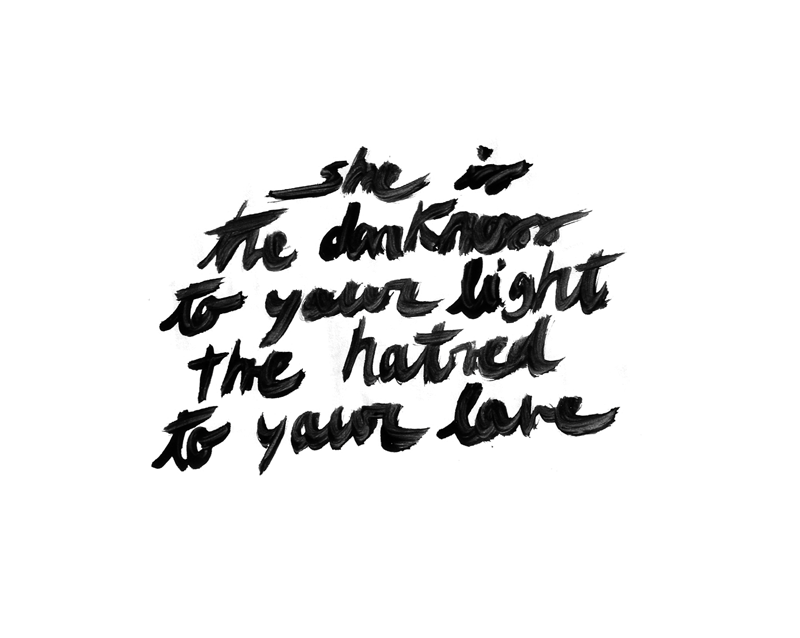 she is
the darkness
to your light
the hatred
to your love